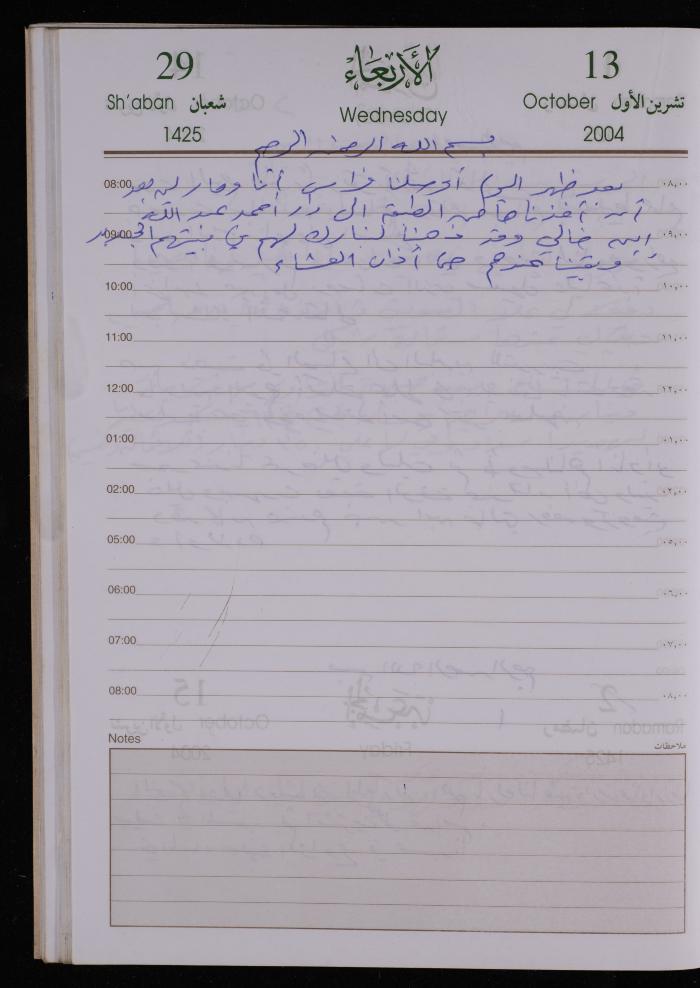 29
الأربعاء
13
Sh'aban شعبان
Wednesday
October تشرين الأول
1425
2004
بسم الله الرحمن الرحيم
08:00 بعد ظهر اليوم أوصلنا فراس أنا و لبن بعد ٠٨,٠٠
أن أخذنا من الطبقة الى دار أحمد عبد الله
09:00 إبن خالي وقد ذهبنا لنبارك لهم في بيتهم الجديد ٠٩,٠٠
وبقينا عندهم حتى أذان العشاء
10:00 ١٠,٠٠
11:00 ١١,٠٠
12:00 ١٢,٠٠
01:00 ٠١,٠٠
02:00 ٠٢,٠٠
05:00 ٠٥,٠٠
06:00 ٠٦,٠٠
07:00 ٠٧,٠٠
08:00 ٠٨,٠٠
Notes ملاحظات